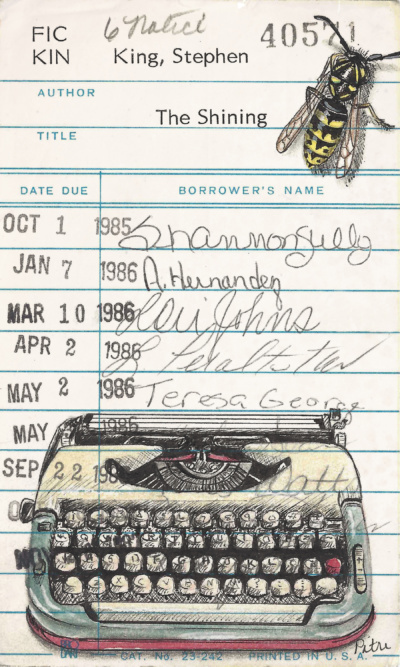 FIC 6 Notices 40521
KIN King, Stephen
AUTHOR
The Shining
TITLE
DATE DUE BORROWER'S NAME
OCT 1 1985 Shannon
JAN 7 1986 A. Hernandez
MAR 10 1986 Lori Johns
APR 2 1986
MAY 2 1986 Teresa George
MAY 1986
SEP 22 198 Watt
NOV
CAT. No. 23-242 PRINTED IN U. S. A.
Petru